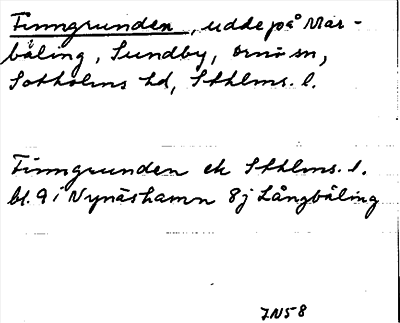 Finngrunden, udde på Mar-
bäling, Sundby, Ornö sn,
Sotholms hd, Sthlms. l.
Finngrunden ek Sthlms. l.
bl. 9 i Nynäshamn 8j Långbäling
JN58